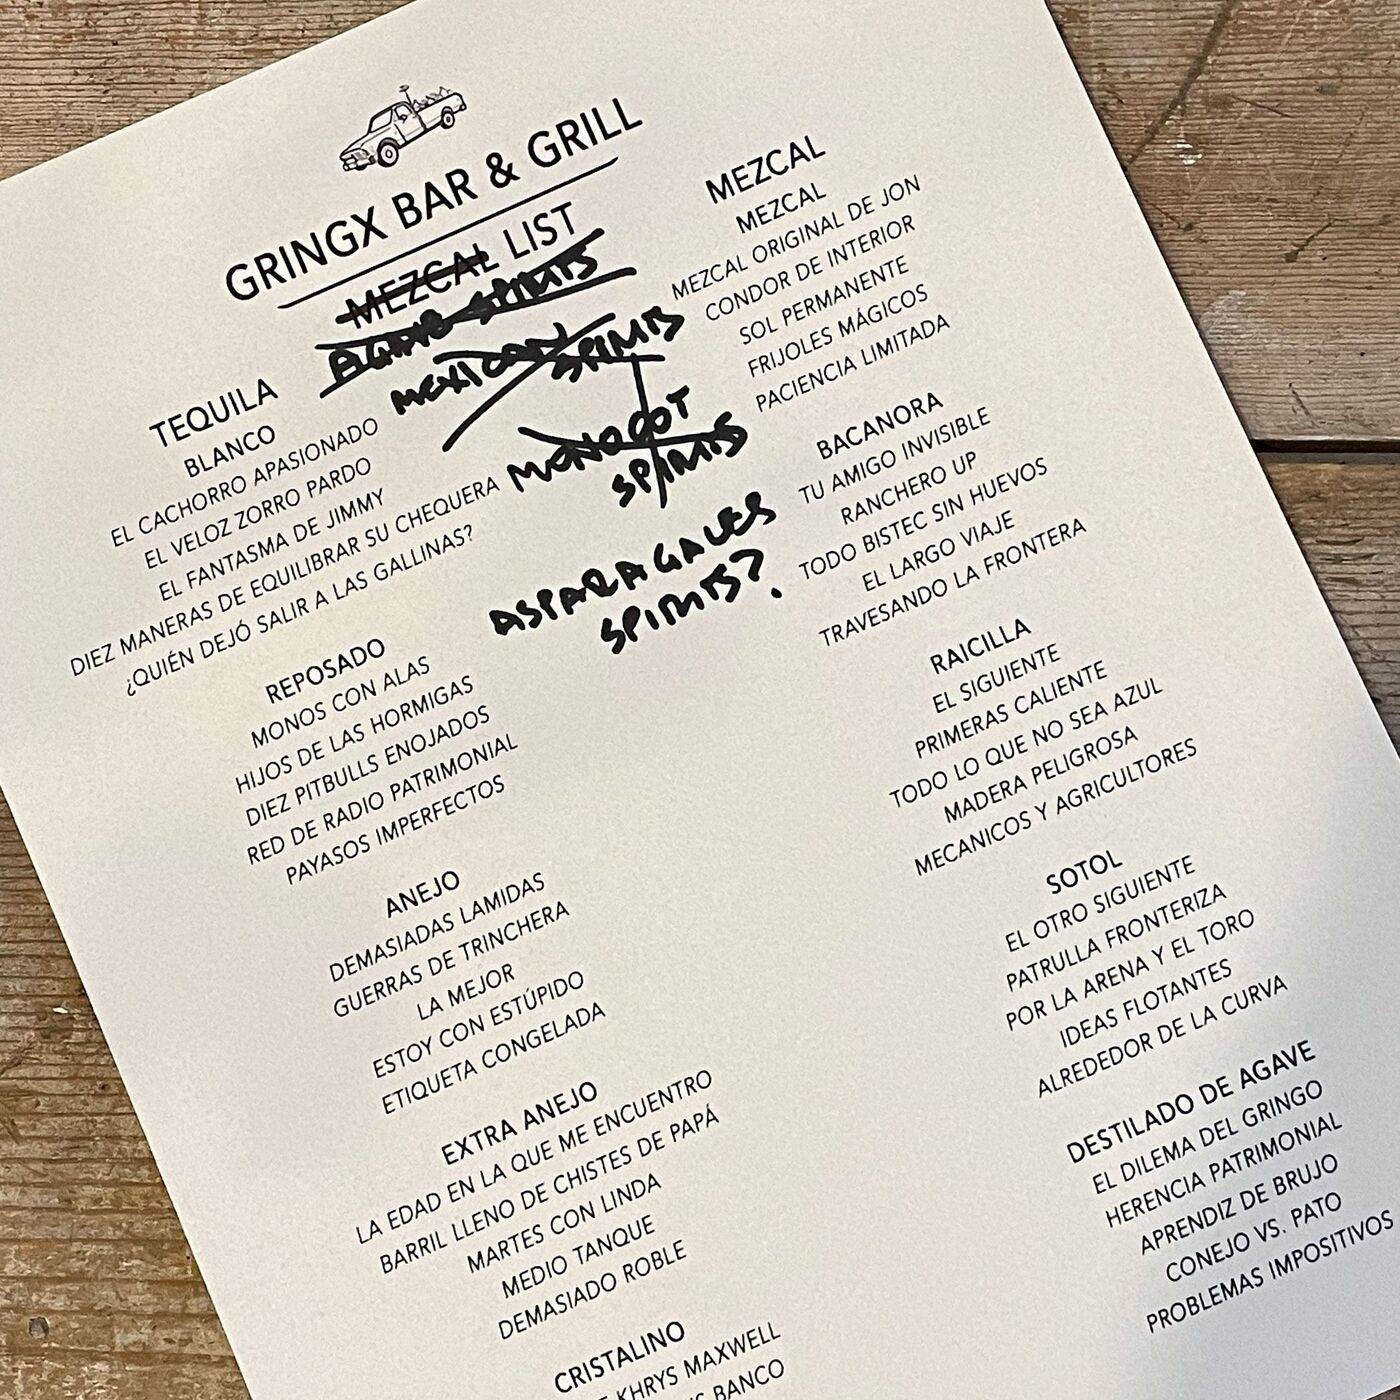 GRINGX BAR & GRILL
MEZCAL LIST
AGAVE SPIRITS
MEXICAN SPIRITS
MONOCOT SPIRITS
ASPARAGALES SPIRITS?
TEQUILA
BLANCO
EL CACHORRO APASIONADO
EL VELOZ ZORRO PARDO
EL FANTASMA DE JIMMY
DIEZ MANERAS DE EQUILIBRAR SU CHEQUERA
¿QUIÉN DEJÓ SALIR A LAS GALLINAS?
REPOSADO
MONOS CON ALAS
HIJOS DE LAS HORMIGAS
DIEZ PITBULLS ENOJADOS
RED DE RADIO PATRIMONIAL
PAYASOS IMPERFECTOS
ANEJO
DEMASIADAS LAMIDAS
GUERRAS DE TRINCHERA
LA MEJOR
ESTOY CON ESTÚPIDO
ETIQUETA CONGELADA
EXTRA ANEJO
LA EDAD EN LA QUE ME ENCUENTRO
BARRIL LLENO DE CHISTES DE PAPÁ
MARTES CON LINDA
MEDIO TANQUE
DEMASIADO ROBLE
CRISTALINO
KHRYS MAXWELL
BANCO
MEZCAL
MEZCAL
MEZCAL ORIGINAL DE JON
CONDOR DE INTERIOR
SOL PERMANENTE
FRIJOLES MÁGICOS
PACIENCIA LIMITADA
BACANORA
TU AMIGO INVISIBLE
RANCHERO UP
TODO BISTEC SIN HUEVOS
EL LARGO VIAJE
TRAVESANDO LA FRONTERA
RAICILLA
EL SIGUIENTE
PRIMERAS CALIENTE
TODO LO QUE NO SEA AZUL
MADERA PELIGROSA
MECANICOS Y AGRICULTORES
SOTOL
EL OTRO SIGUIENTE
PATRULLA FRONTERIZA
POR LA ARENA Y EL TORO
IDEAS FLOTANTES
ALREDEDOR DE LA CURVA
DESTILADO DE AGAVE
EL DILEMA DEL GRINGO
HERENCIA PATRIMONIAL
APRENDIZ DE BRUJO
CONEJO VS. PATO
PROBLEMAS IMPOSITIVOS